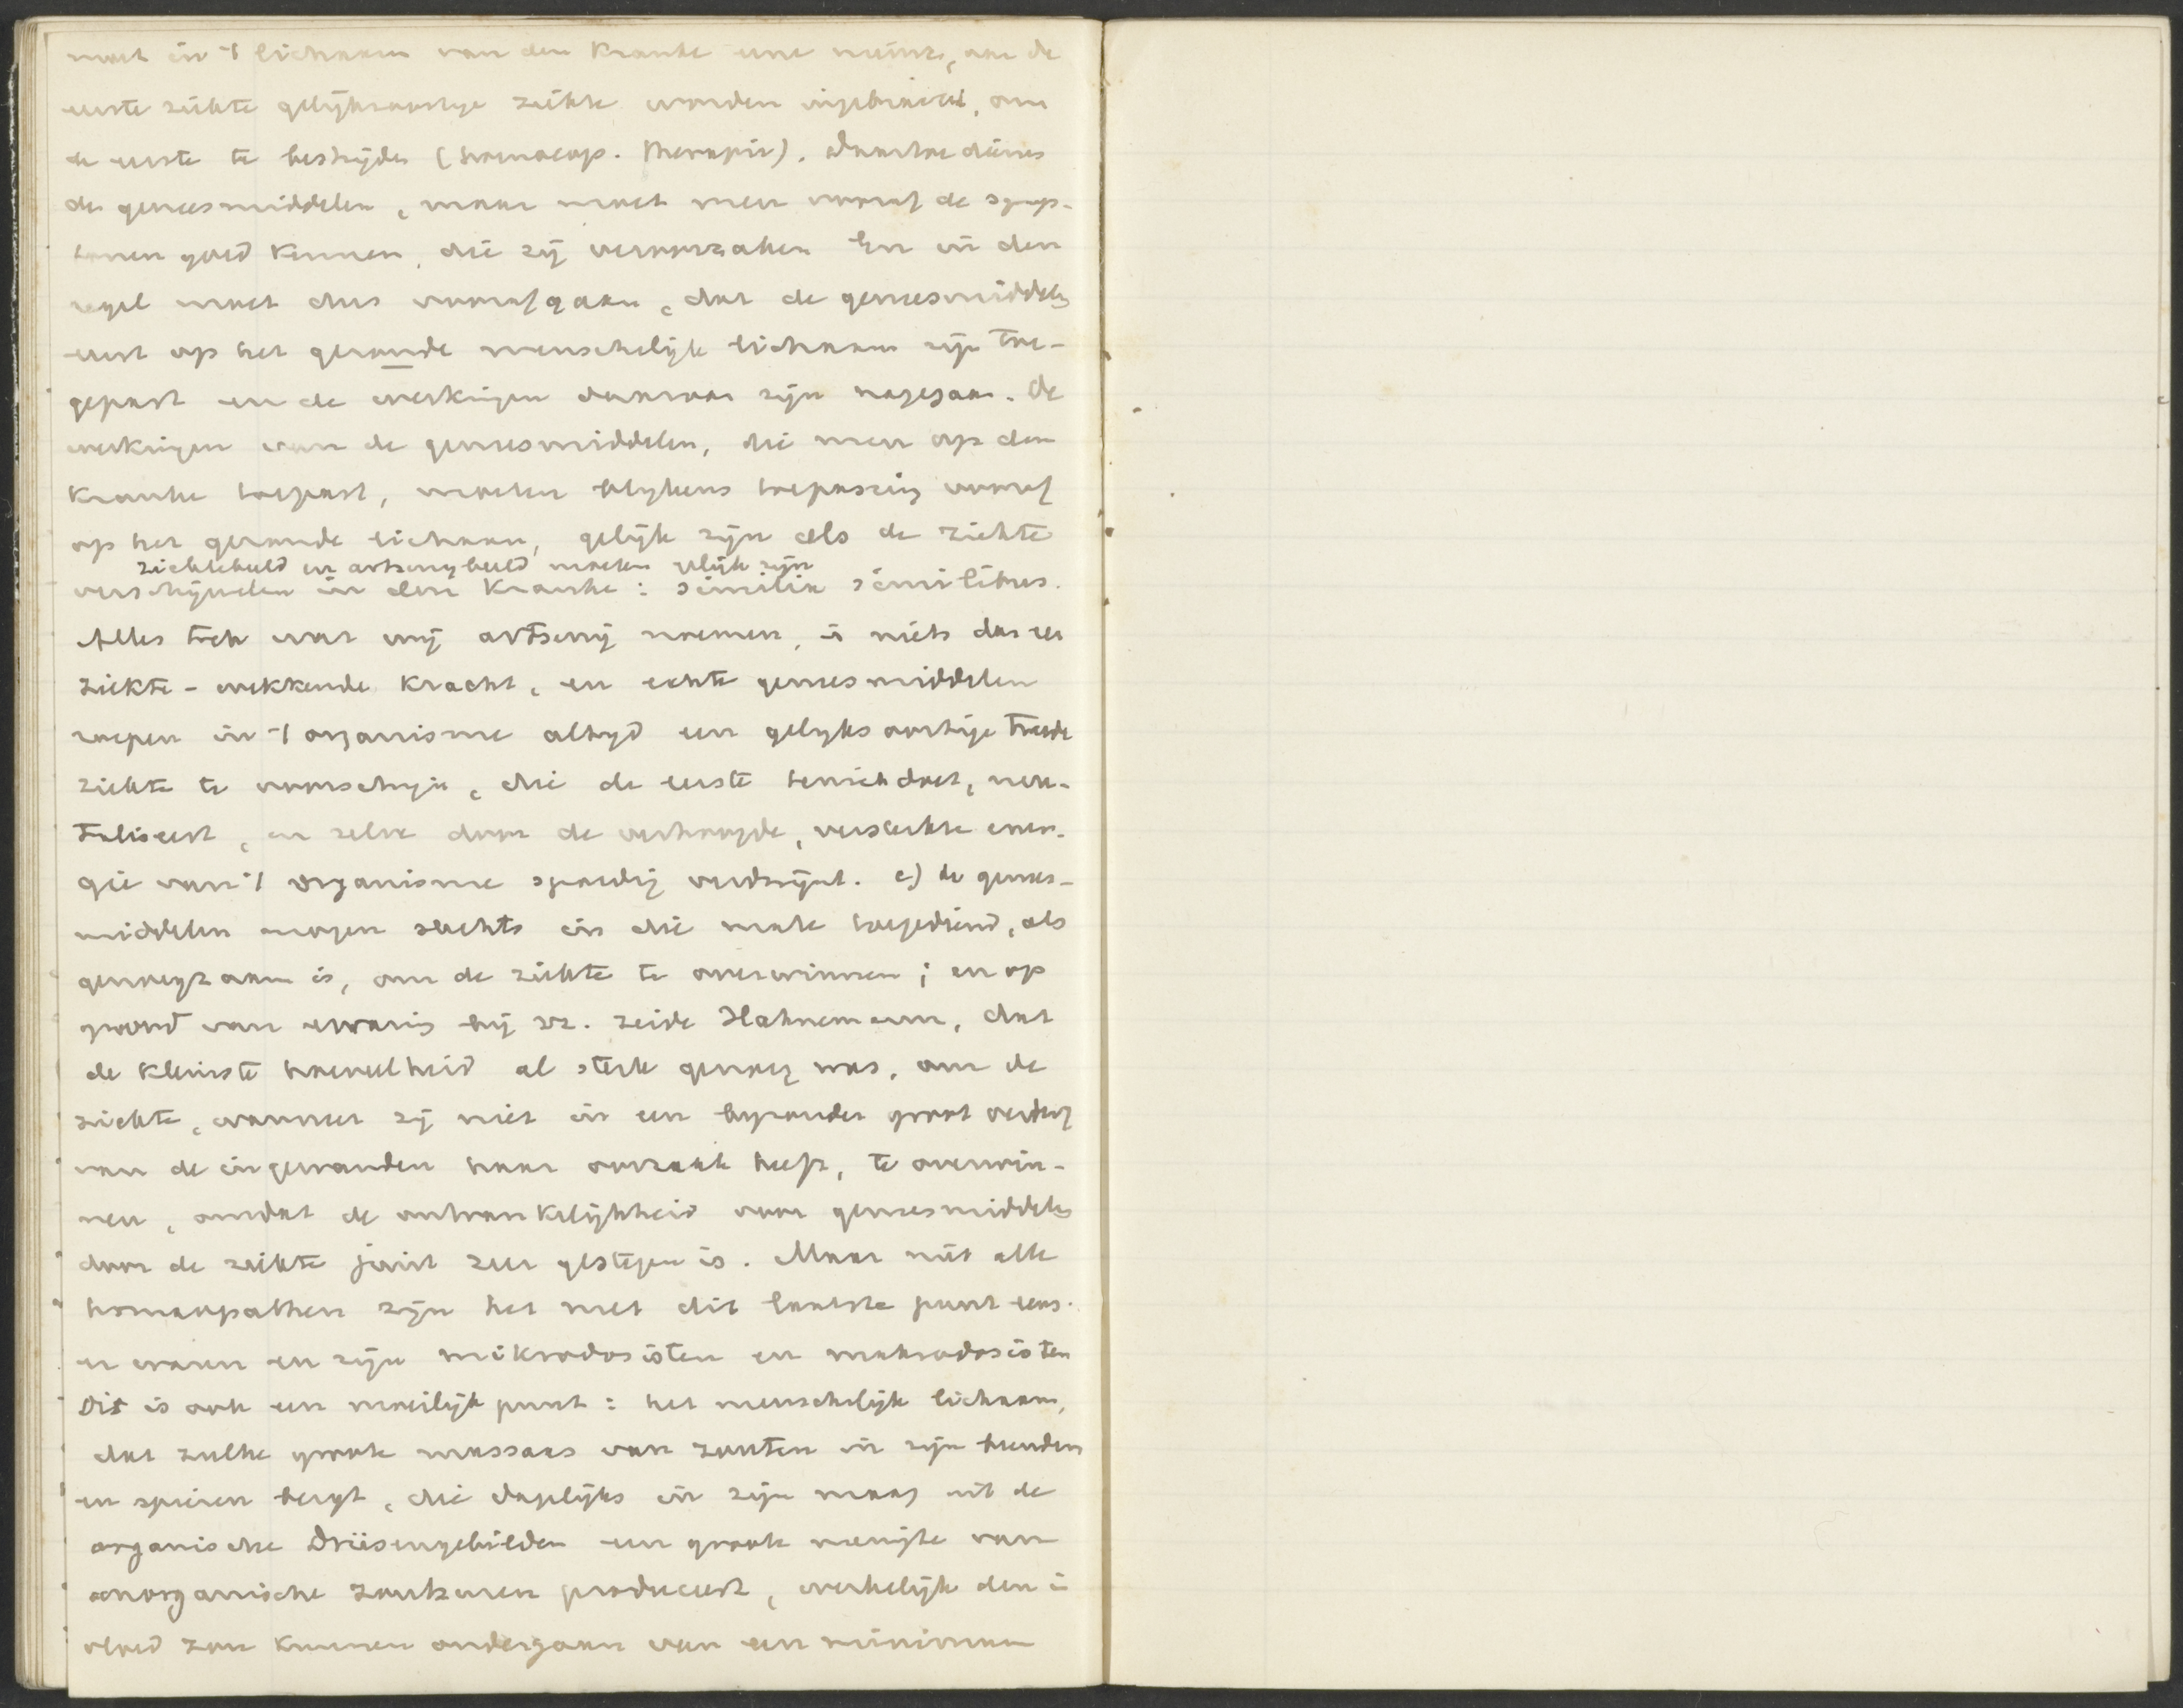 moet in 't lichaam van den kranke eene nieuwe, aan de
eerste ziekte gelijksoortige ziekte worden ingebracht, om
de eerste te bestrijden (homoeop. therapie). Daartoe dienen
de geneesmiddelen, maar moet men vooraf de symp-
tomen goed kennen, die zij veroorzaken. En in den
regel moet dus voorafgaan, dat de geneesmiddelen
eerst op het gezonde menschelijk lichaam zijn toe-
gepast en de werkingen daarvan zijn nagegaan. De
werkingen van de geneesmiddelen, die men op den
kranke toepast, moeten blijkens toepassing vooraf
op het gezonde lichaam, gelijk zijn als de ziekte
ziektebeeld en artsenijbeeld moeten gelijk zijn
verschijnselen in den kranke: similia similibus.
Alles toch wat wij artsenij noemen, is niets dan een
ziekte-wekkende kracht, en echte geneesmiddelen
roepen in 't organisme altijd een gelijksoortige tweede
ziekte te voorschijn, die de eerste tenietdoet, neu-
traliseert, en zelve door de verhoogde, versterkte ener-
gie van 't organisme spoedig verdwijnt. c) de genees-
middelen mogen slechts in die mate toegediend, als
genoegzaam is, om de ziekte te overwinnen; en op
grond van ervaring bij zz. zeide Hahnemann, dat
de kleinste hoeveelheid al sterk genoeg was, om de
ziekte, wanneer zij niet in een bijzonder groot verderf
van de ingewanden haar oorzaak heeft, te overwin-
nen, omdat de ontvankelijkheid voor geneesmiddelen
door de ziekte juist zeer gestegen is. Maar niet alle
homoeopathen zijn het met dit laatste punt eens.
er waren en zijn mikrodosisten en makrodosisten
Dit is ook een moeilijk punt: het menschelijk lichaam,
dat zulke groote massaas van zouten in zijn beenderen
en spieren bergt, die dagelijks in zijn maag uit de
organische Drüsengebilden een groote menigte van
anorganische zoutzuren produceert, werkelijk den in
vloed zou kunnen ondergaan van een minimum